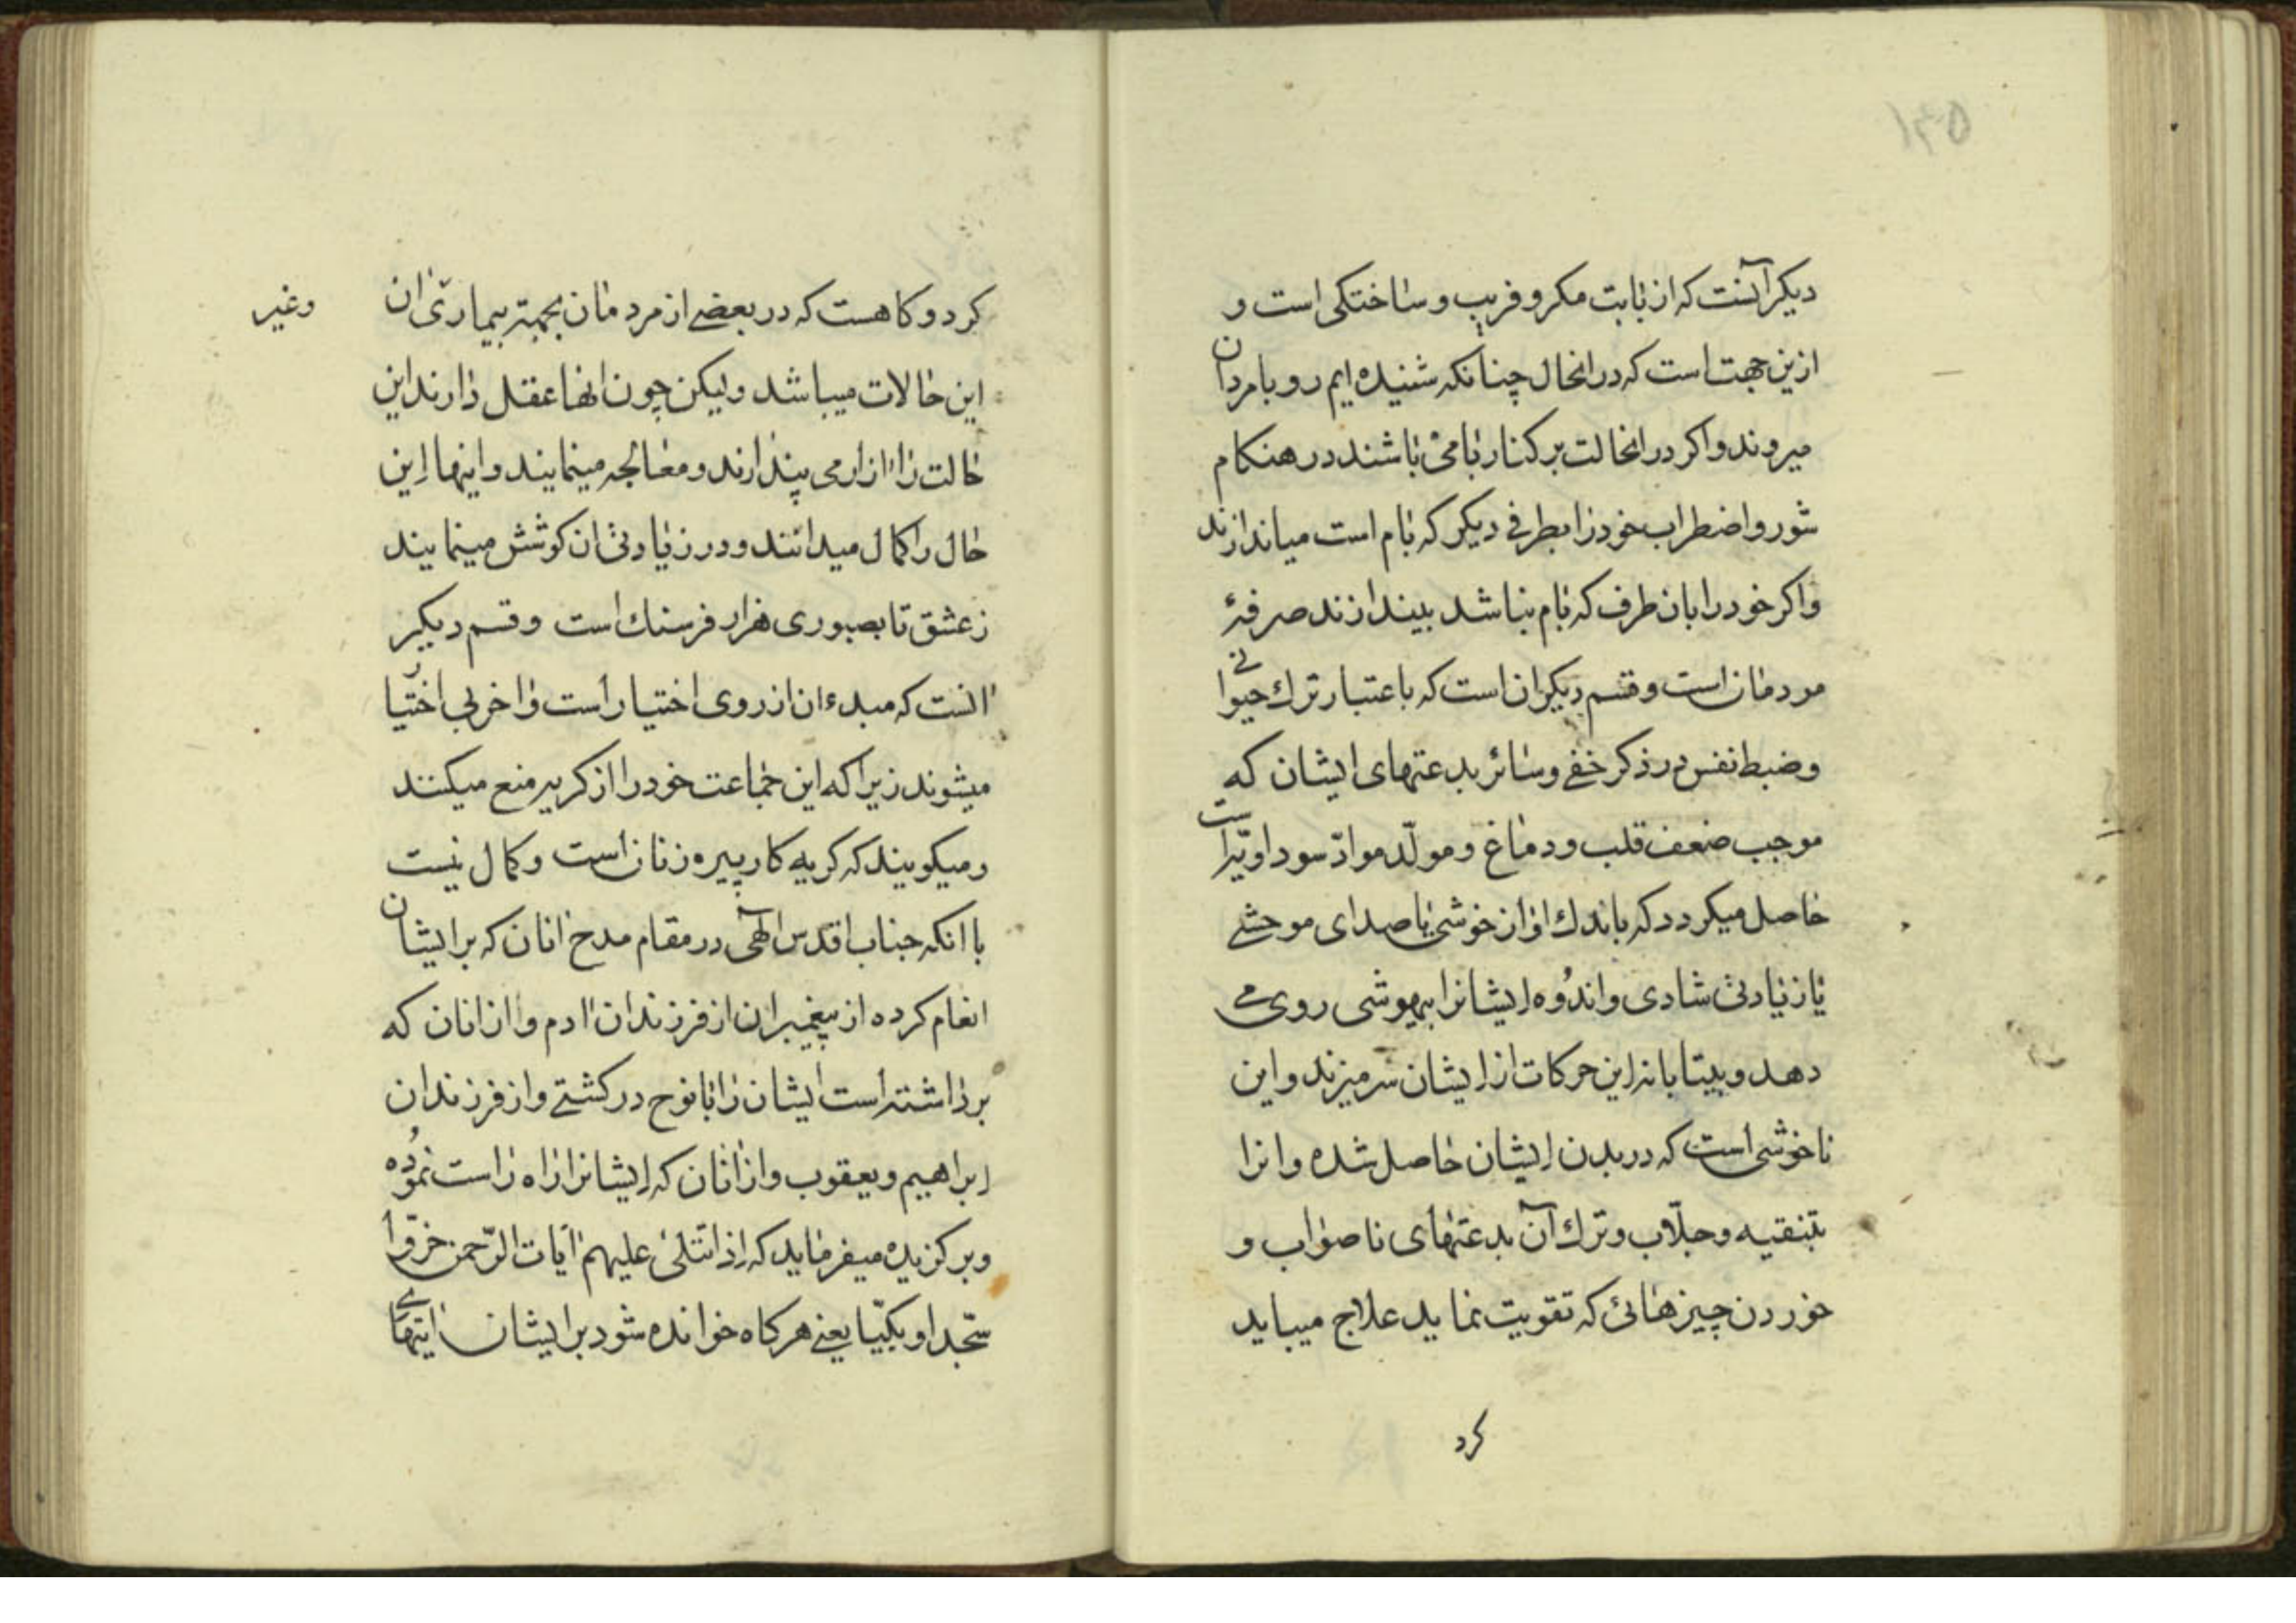 دیکر آنست که از بابت مکر و فریب و ساختکی است و
ازین جهت است که در انحال چنانکه شنیده ایم رو بامردان
میروند و اکر در انحالت بر کنار بامی باشند در هنکام
شور و اضطراب خود را بطرفی دیکر که بام است میاندازند
و اکر خود را بان طرف که بام نباشد بیندازند صرفهٔ
مردمان است و قسم دیکر ان است که باعتبار ترك حیوانی
و ضبط نفس در ذکر خفی و سائر بدعتهای ایشان که
موجب ضعف قلب و دماغ و مولّد موادّ سوداویّه است
حاصل میکردد که باندك اواز خوشی یا صدای موحشی
یا زیادتی شادی و اندُوه ایشانرا بیهوشی روی می
دهد و بیتابانه این حرکات از ایشان سر میزند و این
ناخوشی است که در بدن ایشان حاصل شده و انرا
بتنقیه و جلّاب و ترك آن بدعتهای ناصواب و
خوردن چیزهائی که تقویت نماید علاج میباید
کرد
کرد و کاهست که در بعضی از مردمان بجهته بیماری ان
وغیر
این حالات میباشد ولیکن چون انها عقل دارند این
حالت را ازار می پندارند و معالجه مینمایند و اینها این
حال را کمال میدانند و در زیادتی ان کوشش مینمایند
ز عشق تا بصبوری هزار فرسنك است و قسم دیکر
انست که مبدء ان از روی اختیار است و اخر بی اختیار
میشوند زیرا که این جماعت خود را از کریه منع میکنند
و میکویند که کریه کار پیره زنان است و کمال نیست
با انکه جناب اقدس الٓهی در مقام مدح انان که بر ایشان
انعام کرده از پیغمبران از فرزندان ادم و از انان که
برداشته است ایشان را با نوح در کشتی و از فرزندان
ابراهیم و یعقوب و از انان که ایشانرا راه راست نموُده
و بر کزیده میفرماید که اِذا تتلیٰ علیهم ایات الرّحمن خرّوا
سجّدا و بکیّا یعنی هر کاه خوانده شود بر ایشان ایتهای